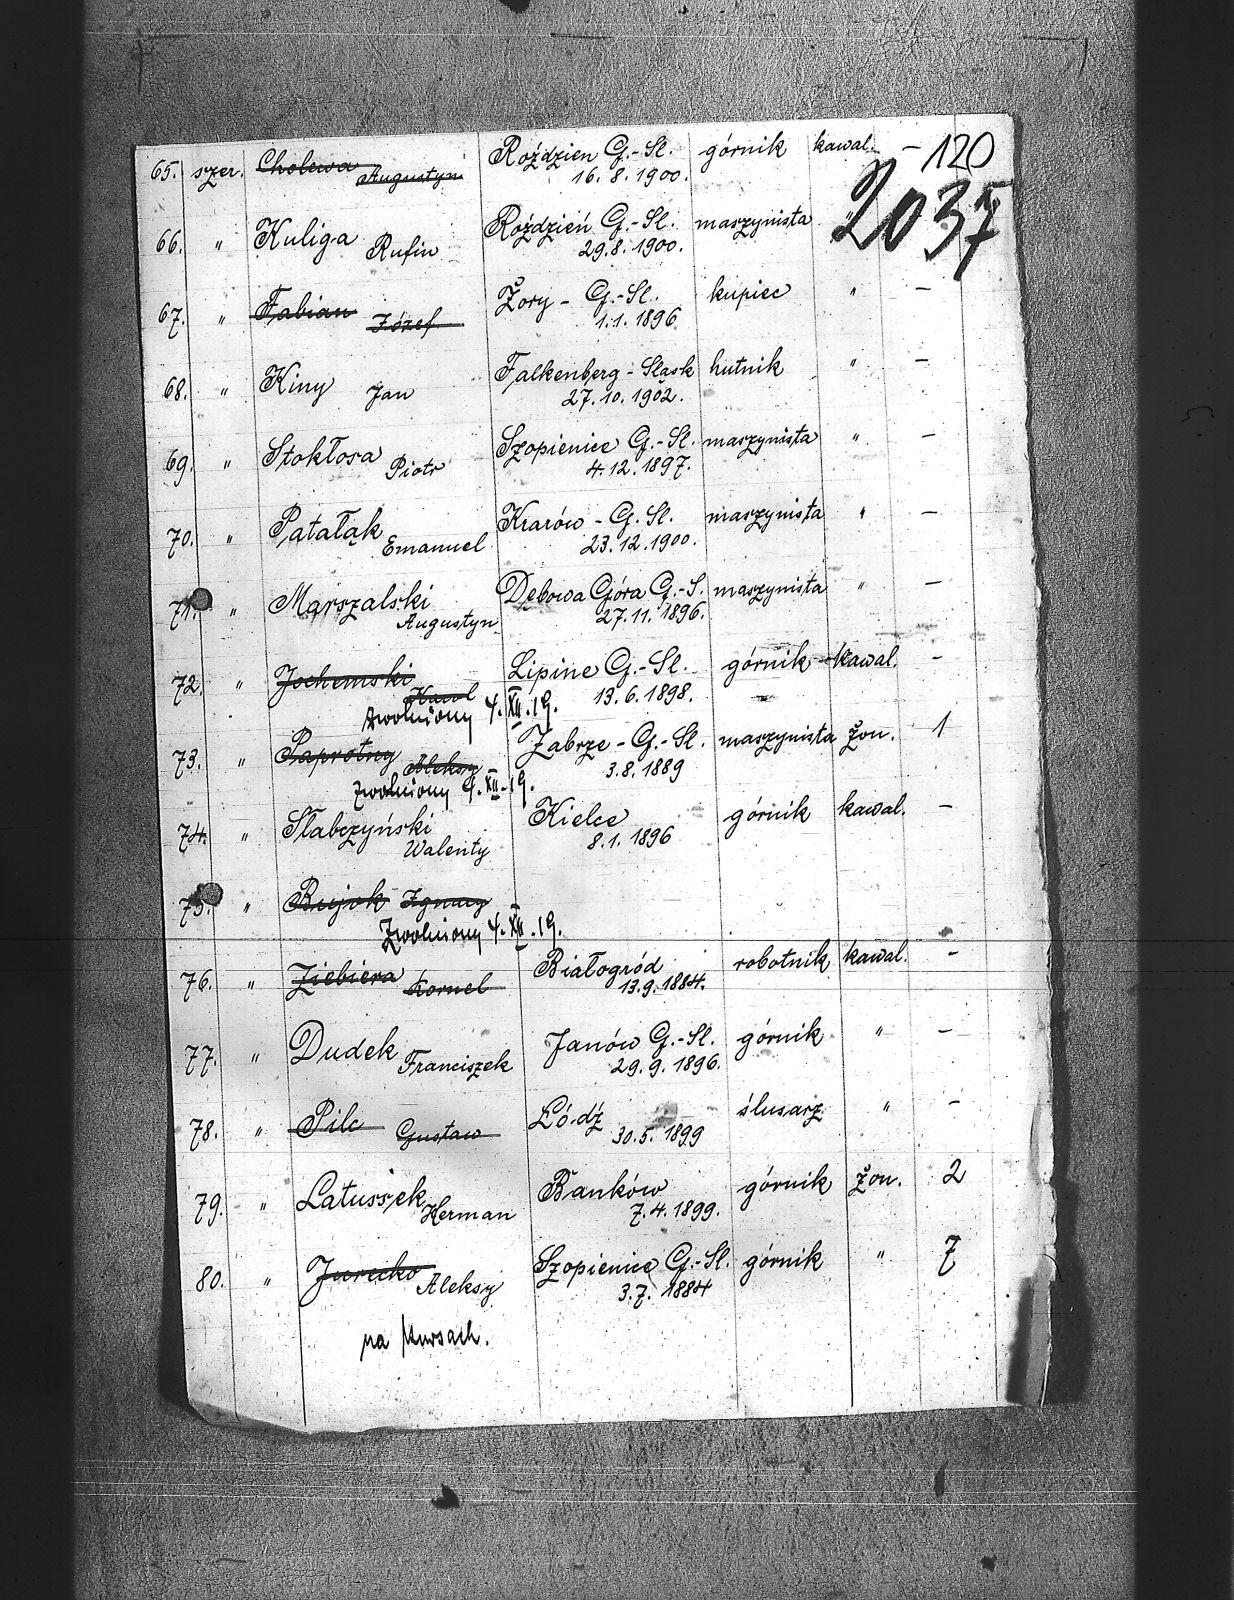 65. szer. Cholewa Augustyn Roździen G.-Sl. 16.8.1900. górnik kawal. - 120
2037
66. " Kuliga Rufin Roździeń G.-Sl. 29.8.1900. maszynista "
67. " Fabian Józef Żory - G.-Sl. 1.1.1896. kupiec " -
68. " Kiny Jan Falkenberg - Slask 27.10.1902. hutnik " -
69. " Stokłosa Piotr Szopienice G.-Sl. 4.12.1897. maszynista " -
70. " Patałąk Emanuel G.Sl. 23.12.1900. maszynista " -
71. " Marszalski Augustyn Dębowa Góra G.-S. 27.11.1896. maszynista " -
72. " Jochemski Karol Lipine G.-Sl. 13.6.1898. górnik kawal. -
zwolniony 4.XII.19.
73. " Paprotny Aleksy Zabrze - G.-Sl. 3.8.1889 maszynista żon. 1
zwolniony 4.XII.19.
74. " Słabczyński Walenty Kielce 8.1.1896 górnik kawal. -
75. " Bujok Ignacy
Zwolniony 4.XII.19.
76. " Ziebiera Kornel Białogród 13.9.1884. robotnik kawal. -
77. " Dudek Franciszek Janów G.-Sl. 29.9.1896. górnik " -
78. " Pilc Gustaw Łódź 30.5.1899 ślusarz " -
79. " Latuszek Herman Banków 7.4.1899. górnik żon. 2
80. " Jureczko Aleksy Szopienice G.-Sl. 3.7.1884 górnik " 7
na kursach.